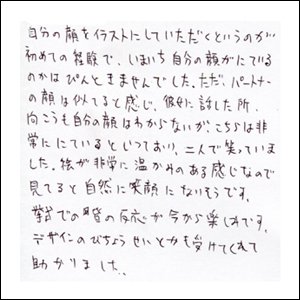 自分の顔をイラストにしていただくというのが
初めての経験で、いまいち自分の顔がにている
のかはぴんときませんでした。ただ、パートナー
の顔は似てると感じ、彼女に話した所、
向こうも自分の顔はわからないが、こちらは非
常ににているといっており、二人で笑っていま
した。絵が非常に温かみのある感じなので
見てると自然に笑顔になりそうです。
挙式での皆の反応が今から楽しみです。
デザインのびちょうせいとかも受けてくれて
助かりました。